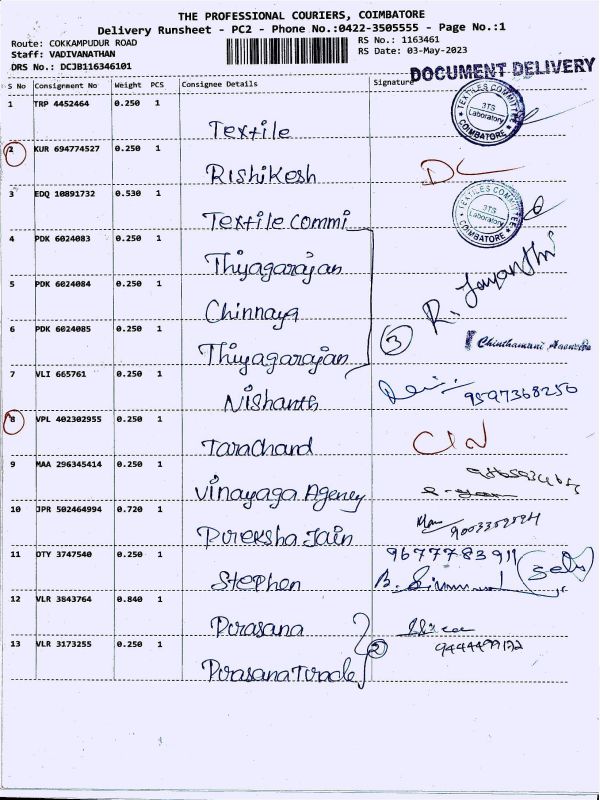 THE PROFESSIONAL COURIERS, COIMBATORE
Delivery Runsheet - PC2 - Phone No.:0422-3505555 - Page No.:1
Route: COKKAMPUDUR ROAD
Staff: VADIVANATHAN
DRS No.: DCJB116346101
RS No.: 1163461
RS Date: 03-May-2023
DOCUMENT DELIVERY
S No Consignment No Weight PCS Consignee Details Signature
1 TRP 4452464 0.250 1 Textile
TEXTILES COMMITTEE 3TS Laboratory COIMBATORE
2 KUR 694774527 0.250 1 Rishikesh DC
3 EDQ 10891732 0.530 1 Textile Commi
TEXTILES COMMITTEE 3TS Laboratory COIMBATORE
4 PDK 6024083 0.250 1 Thiyagarajan
5 PDK 6024084 0.250 1 Chinnaya R. Jayanthi
6 PDK 6024085 0.250 1 Thiyagarajan 3 Chinthamani Agencies
7 VLI 665761 0.250 1 Nishanth 9597368250
8 VPL 402302955 0.250 1 Tarachand
9 MAA 296345414 0.250 1 Vinayaga Agency
10 JPR 502464994 0.720 1 Pureksha Jain
11 DTY 3747540 0.250 1 Stephen 9677783911
12 VLR 3843764 0.840 1 Prasana
13 VLR 3173255 0.250 1 2